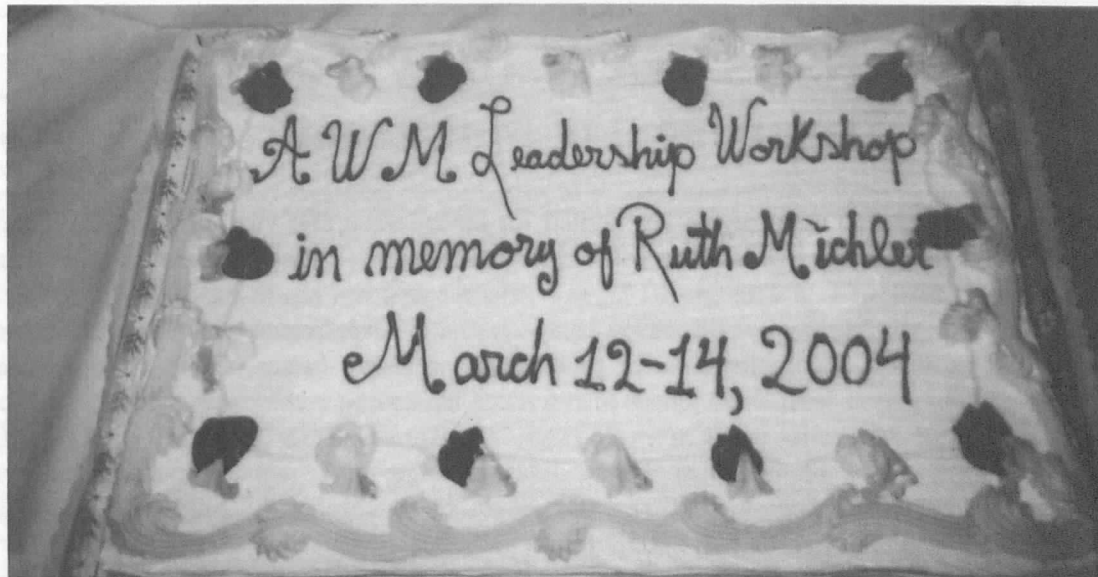 AWM Leadership Workshop
in memory of Ruth Michler
March 12-14, 2004